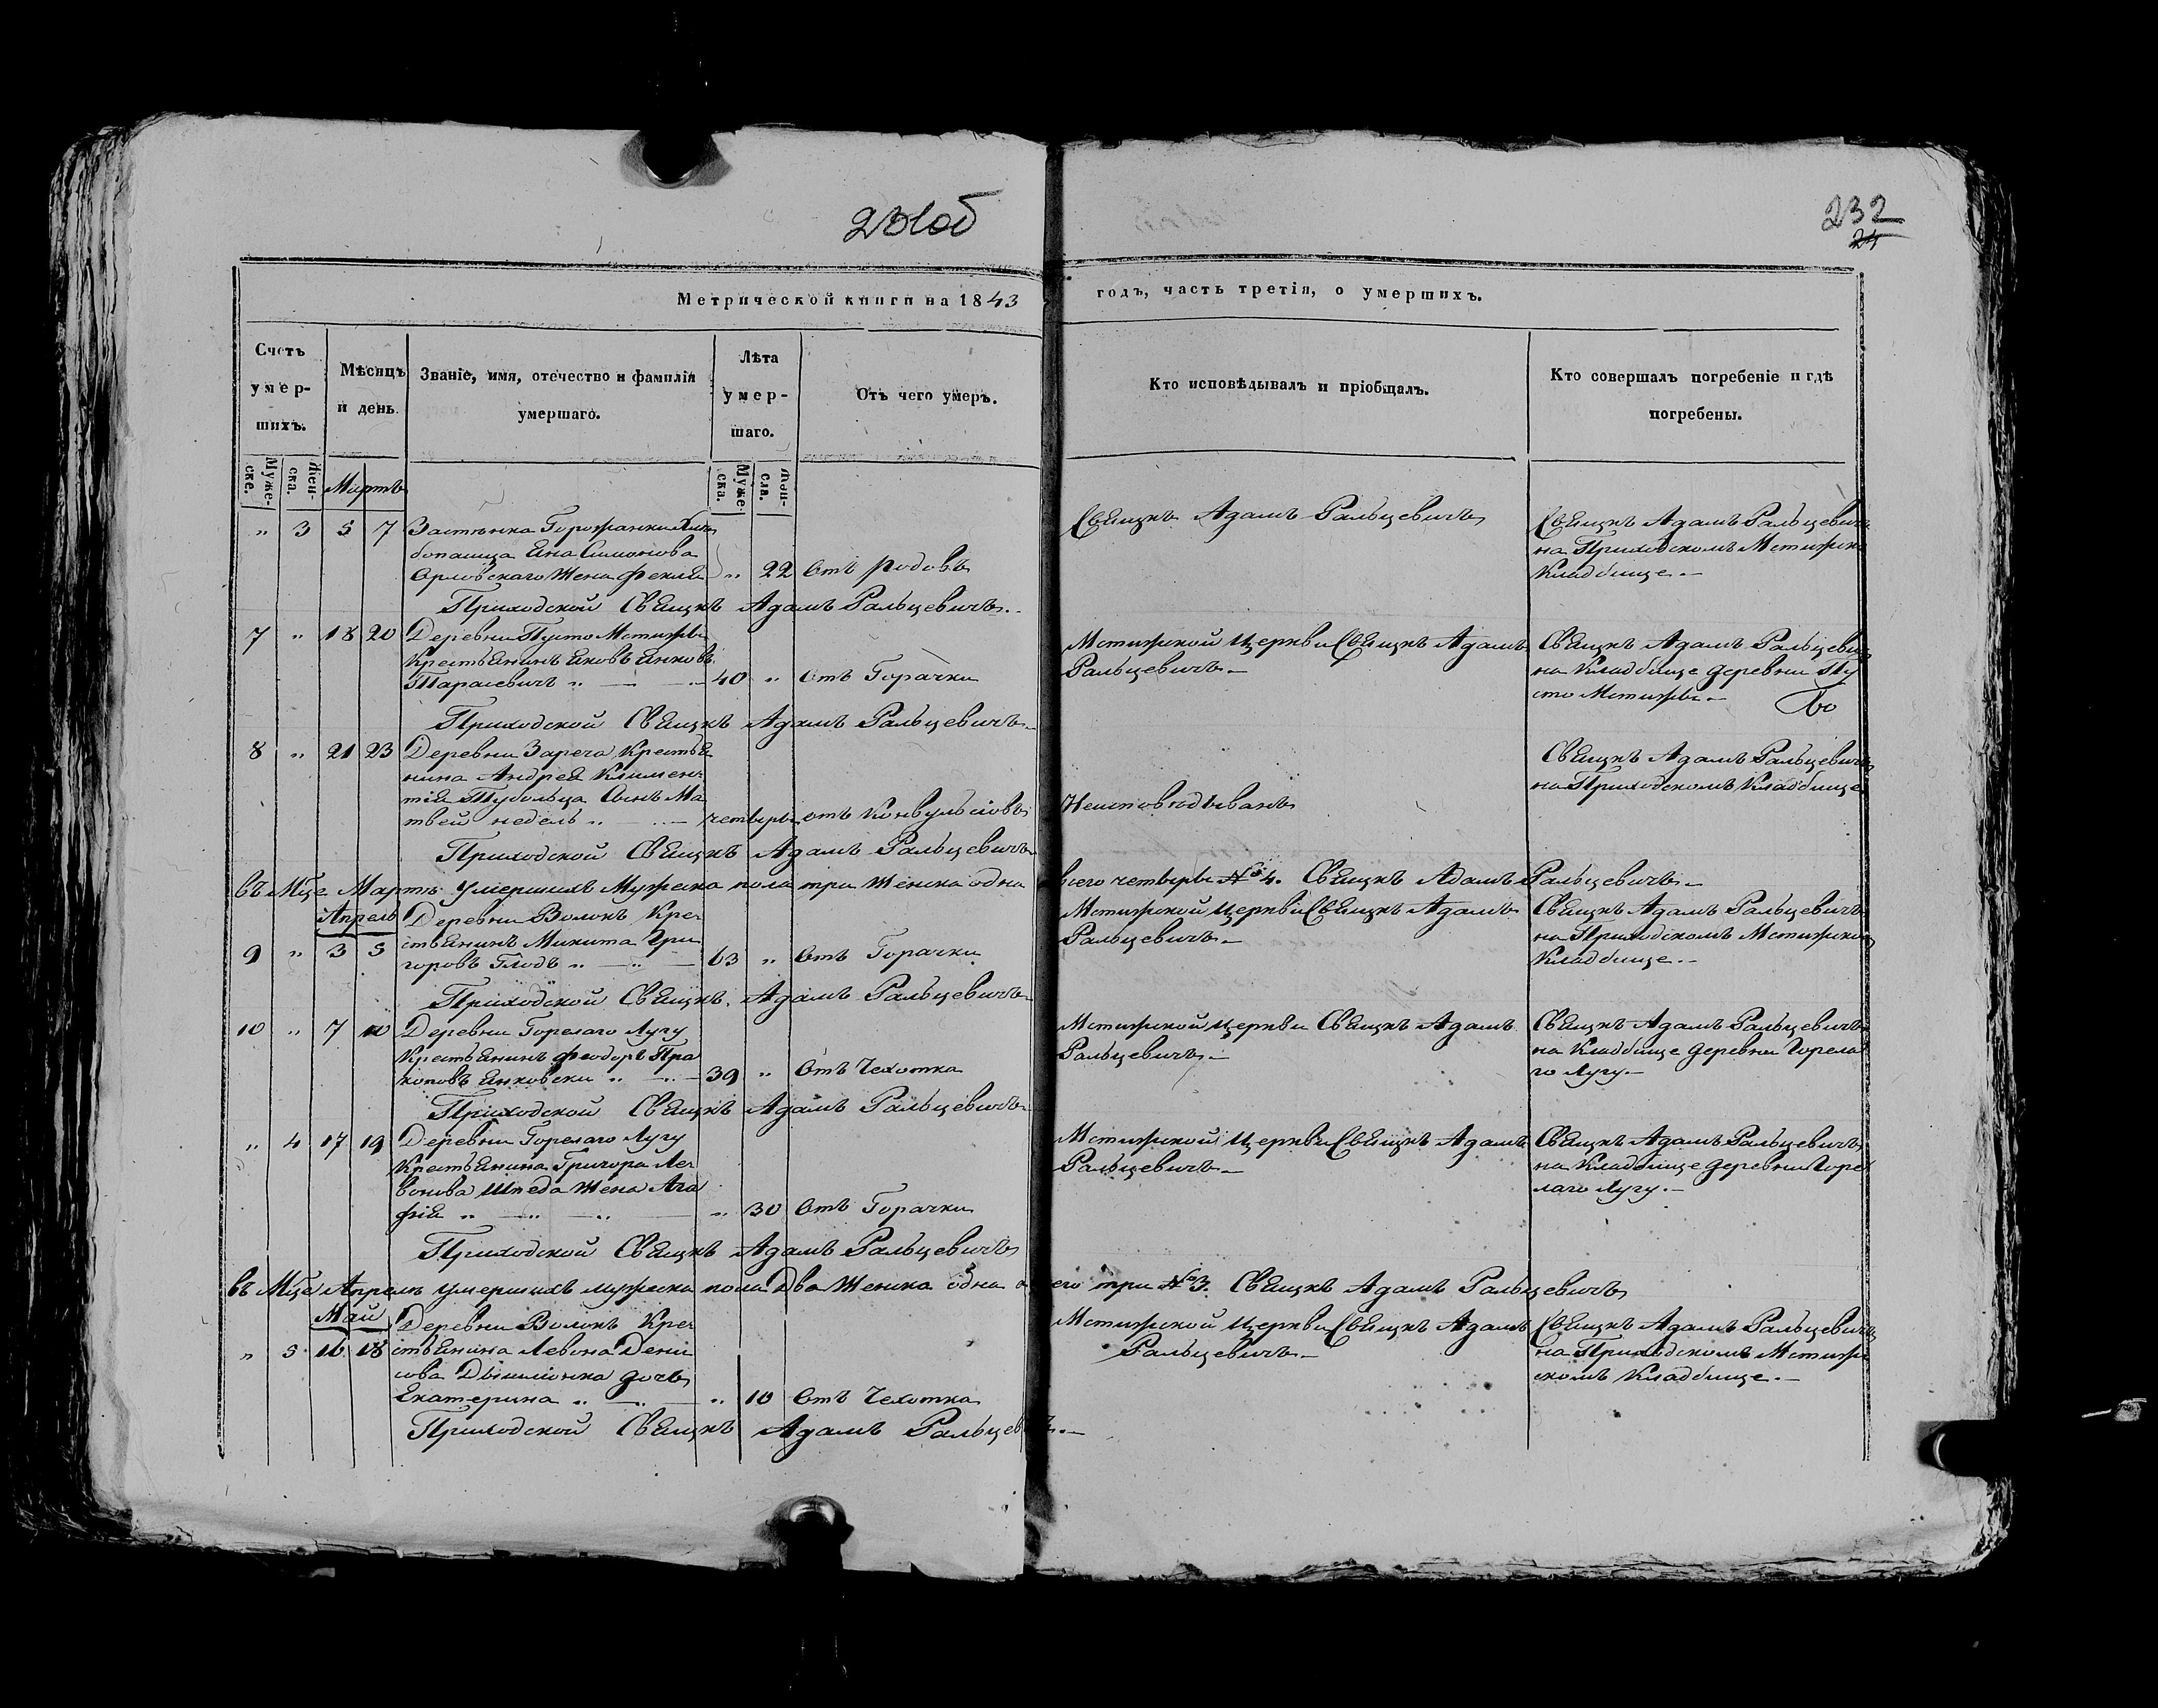 231об
232
24
Метрической книги на 1843 годъ, часть третія, о умершихъ.
Счетъ умер-шихъ.
Мѣсяцъ и день.
Званіе, имя, отечество и фамилія умершаго.
Лѣта умер-шаго.
Отъ чего умеръ.
Кто исповѣдывалъ и пріобщалъ.
Кто совершалъ погребеніе и гдѣ погребены.
Муже-ске.
Жен-ска.
Муже-ска.
Жен-ска.
Мартъ
" 3 5 7 Застѣнка Горожанки
Яна Симонова
Орловскаго Жена Фекля " 22 Отъ родовъ
Свящкъ Адамъ Ральцевичъ
Свящкъ Адамъ Ральцевичъ
на Приходскомъ Мстижск
Кладбище.
Приходской Свящкъ Адамъ Ральцевичъ.
7 " 18 20 Деревни Пусто Мстижъ
Крестьянинъ Яковъ Янковъ
Тарасевичъ " 40 " Отъ Горачки
Мстижской Церкви Свящкъ Адамъ
Ральцевичъ.
Свящкъ Адамъ Ральцевич
на Кладбище деревни Пу
сто Мстижъ.
Приходской Свящкъ Адамъ Ральцевичъ.
8 " 21 23 Деревни Зареча Крестья
нина Андрея Климен
тія Сынъ Ма
твей недель " четыръ отъ Конвульсіовъ
Неисповѣдыванъ
Свящкъ Адамъ Ральцевичъ
на Приходскомъ Кладбище
Приходской Свящкъ Адамъ Ральцевичъ
Въ Мцѣ Мартѣ умершихъ Мужеска пола три Женска одна всего четыръ № 4. Свящкъ Адамъ Ральцевичъ.
Апрель
Деревни Волокъ Кре
9 " 3 5 стьянинъ Микита Гри
горовъ Глодъ " 63 " Отъ Горачки
Мстижской Церкви Свящкъ Адамъ
Ральцевичъ.
Свящкъ Адамъ Ральцевичъ
на Приходскомъ Мстижском
Кладбище.
Приходской Свящкъ Адамъ Ральцевичъ
10 " 7 10 Деревни Горелаго Лугу
Крестьянинъ Феодоръ Пра
коповъ Янковски " 39 " Отъ Чехотка
Мстижской Церкви Свящкъ Адамъ
Ральцевичъ.
Свящкъ Адамъ Ральцевичъ
на Кладбище деревни Горела
го Лугу.
Приходской Свящкъ Адамъ Ральцевичъ
" 4 17 19 Деревни Горелаго Лугу
Крестьянина Григора Ле
вонова Шпеда Жена Ага
фія " " 30 Отъ Горачки
Мстижской Церкви Свящкъ Адамъ
Ральцевичъ.
Свящкъ Адамъ Ральцевичъ
на Кладбище деревни Горе
лаго Лугу.
Приходской Свящкъ Адамъ Ральцевичъ
Въ Мцѣ Апрелѣ умершихъ мужеска пола Два Женска одна всего три № 3. Свящкъ Адамъ Ральцевичъ
Май
Деревни Волокъ Кре
" 5 16 18 стьянина Левона Дени
сова дочь
Екатерина " " 10 Отъ Чехотка
Мстижской Церкви Свящкъ Адамъ
Ральцевичъ.
Свящкъ Адамъ Ральцевичъ
на Приходскомъ Мстиж
скомъ Кладбище.
Приходской Свящкъ Адамъ Ральцевичъ.